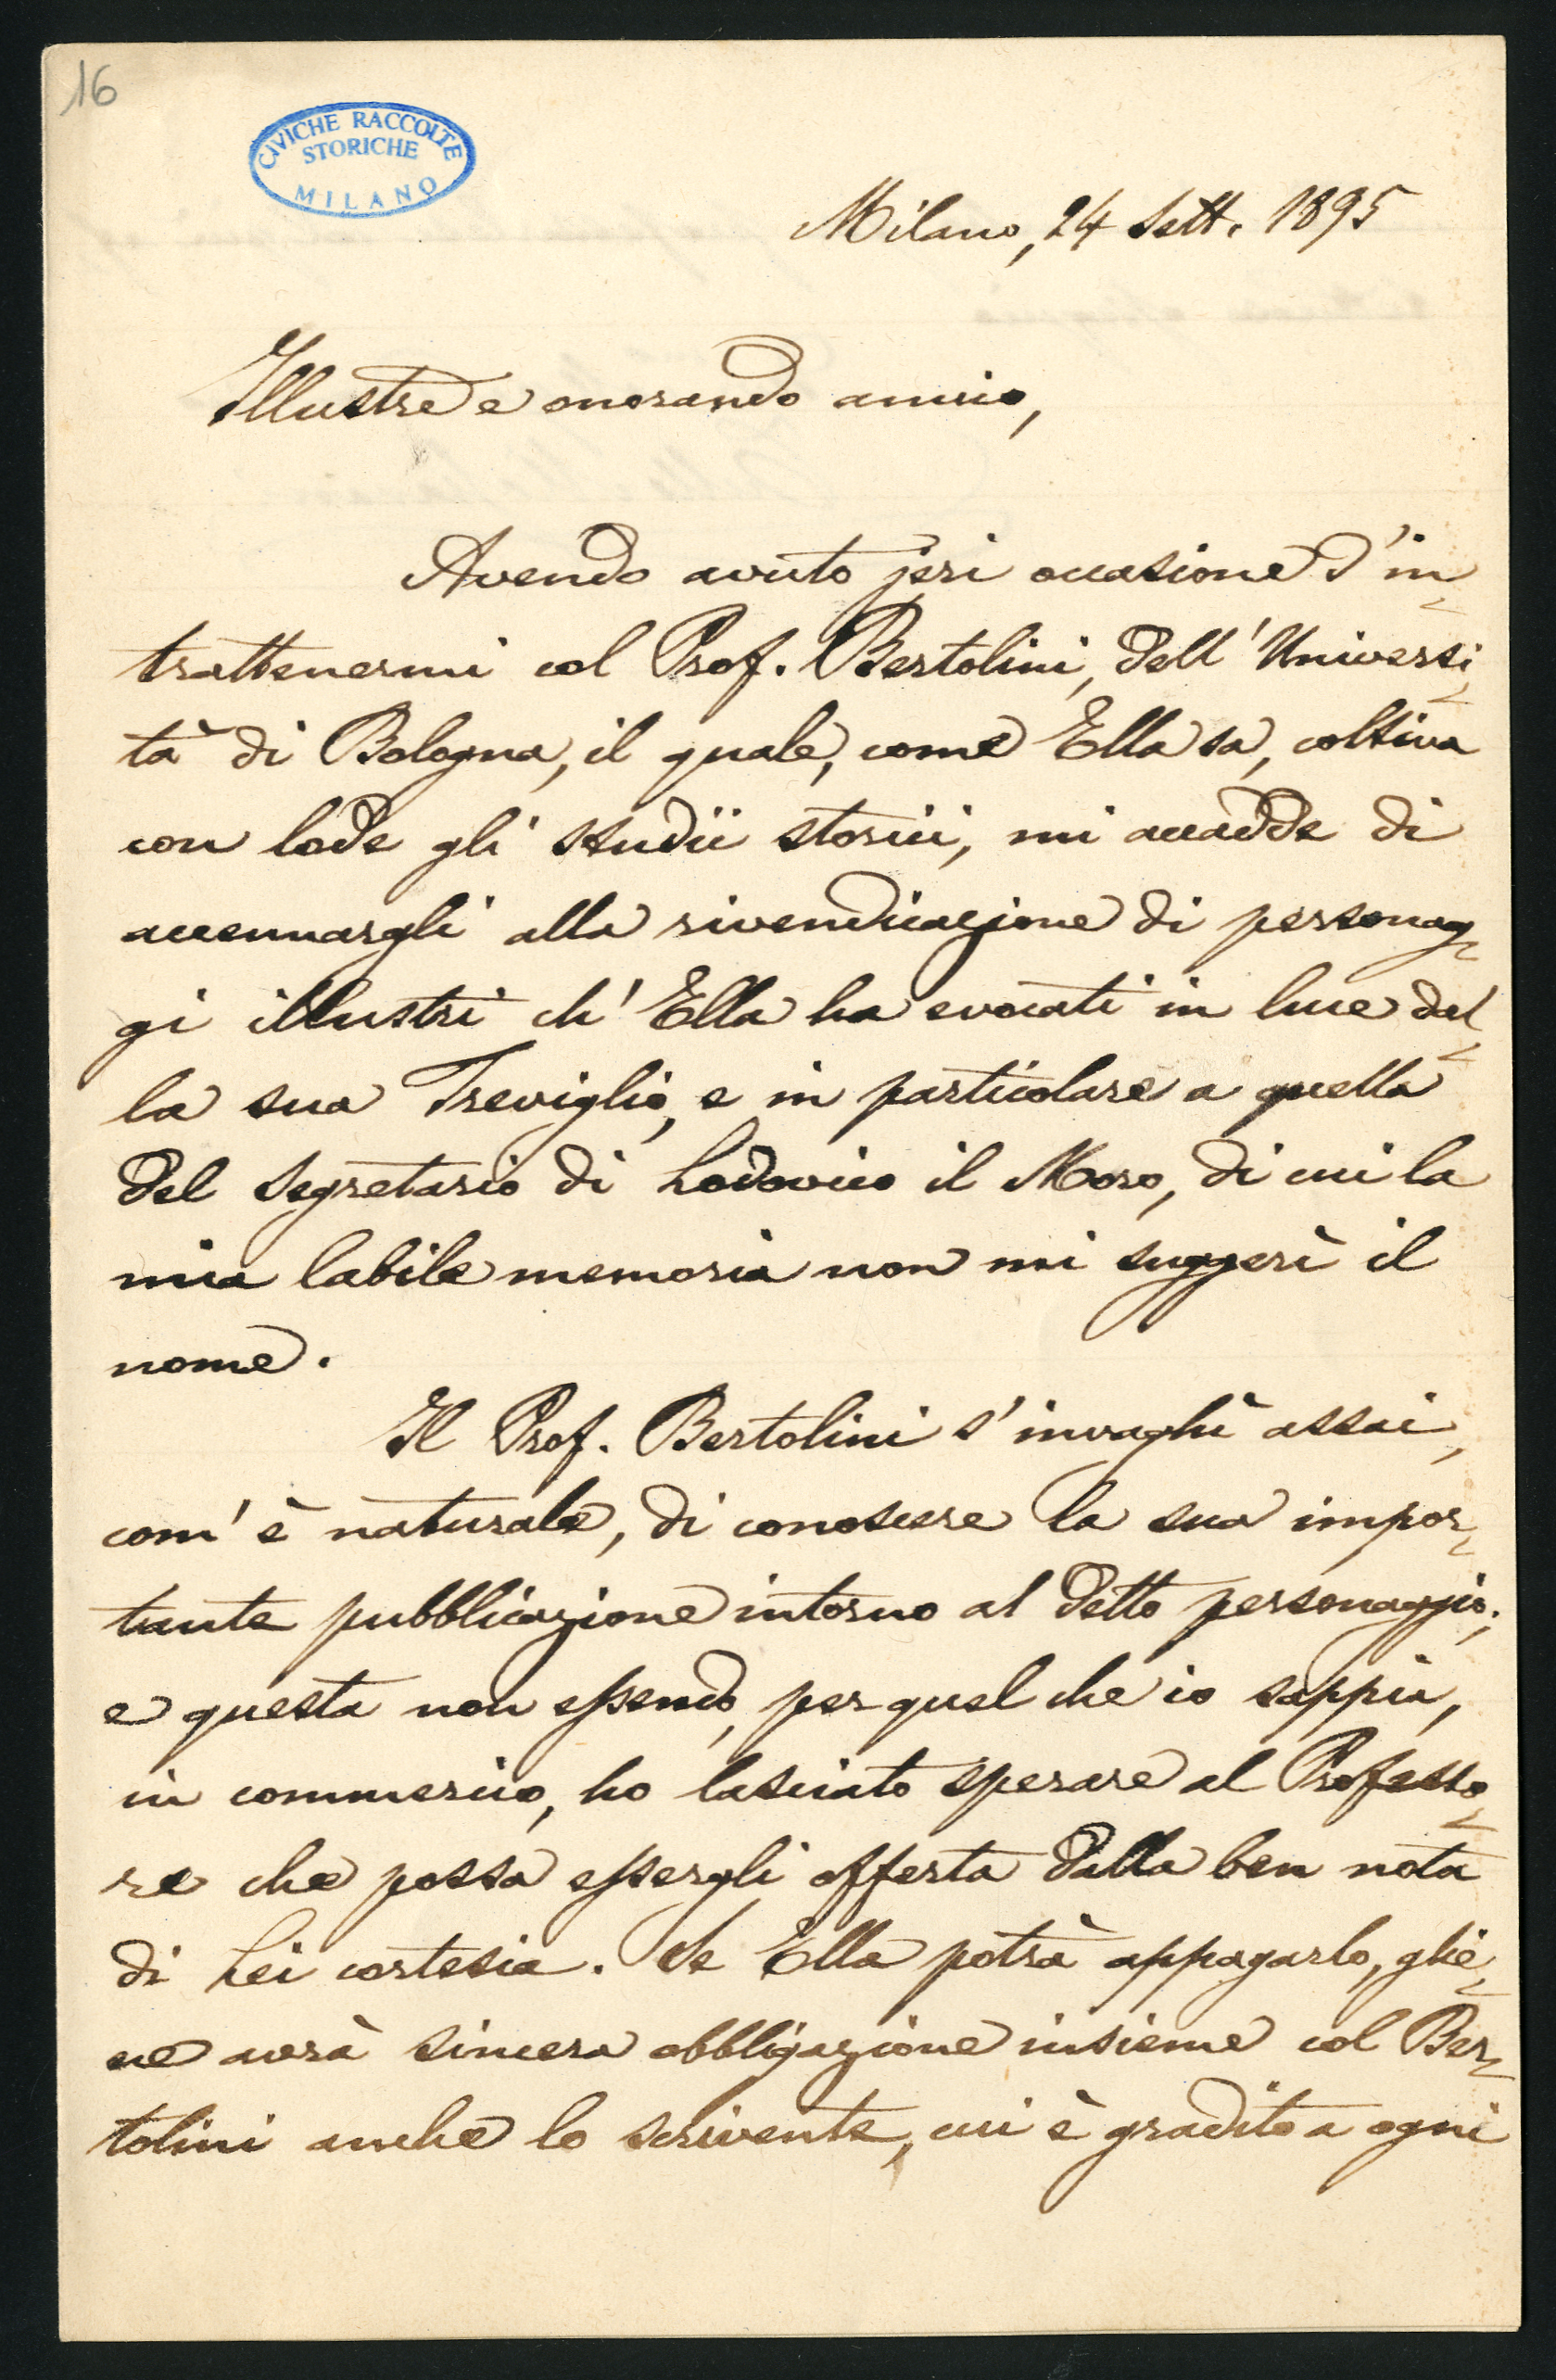 16
CIVICHE RACCOLTE
STORICHE
MILANO
Milano, 24 Sett. 1895
Illustre e onorando amico,
Avendo avuto jeri occasione d'in-
trattenermi col Prof. Bertolini, dell'Universi-
tà di Bologna, il quale, come Ella sa, coltiva
con lode gli studii storici, mi accadde di
accennargli alla rivendicazione di personag-
gi illustri ch'Ella ha evocati in luce del-
la sua Treviglio, e in particolare a quella
del Segretario di Lodovico il Moro, di cui la
mia labile memoria non mi suggerì il
nome.
Il Prof. Bertolini s'invaghì assai,
com'è naturale, di conoscere la sua impor-
tante pubblicazione intorno al detto personaggio;
e questa non essendo, per quel che io sappia,
in commercio, ho lasciato sperare al Professo-
re che possa essergli offerta dalla ben nota
di Lei cortesia. Se Ella potrà appagarlo, glie-
ne avrà sincera obbligazione insieme col Ber-
tolini anche lo scrivente, cui è gradito a ogni